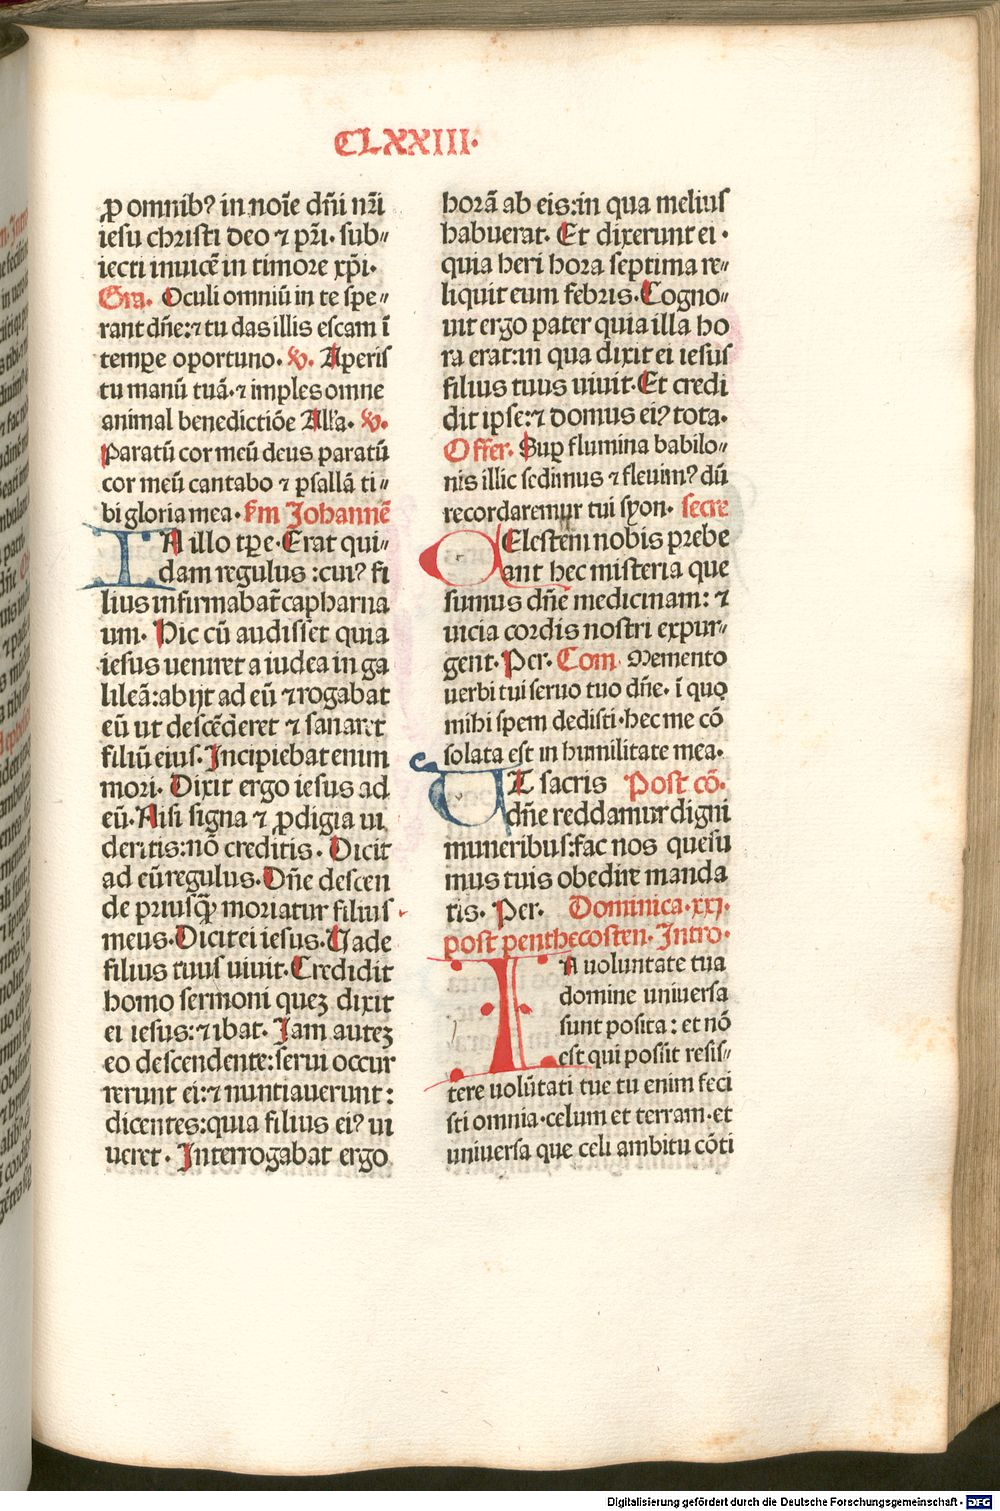 CLXXIII·
ꝓ omnibꝰ in noīe dn̄i nr̄i
iesu christi deo ⁊ pr̄i· sub⸗
iecti inuicē in timore xp̄i·
Gra. Oculi omniū in te spe⸗
rant dn̄e:⁊ tu das illis escam ī
tempe oportuno. v. Aperis
tu manū tuā·⁊ imples omne
animal benedictiōe All'a· v.
Paratū cor meū deus paratū
cor meū cantabo ⁊ psallā ti⸗
bi gloria mea· km Johannē
IN illo tp̄e·Erat qui⸗
dam regulus :cuiꝰ fi
lius infirmabat̄ capharna
um· Hic cū audisset quia
iesus ueniret a iudea in ga
lileā:abijt ad eū ⁊ rogabat
eū ut descēderet ⁊ sanaret
filiū eius· Incipiebat enim
mori· Dixit ergo iesus ad
eū·Nisi signa ⁊ ꝓdigia ui
deritis:nō creditis· Dicit
ad eū regulus·Dn̄e descen
de priusqꝫ moriatur filius
meus·Dicit ei iesus·Uade
filius tuus uiuit·Credidit
homo sermoni queꝫ dixit
ei iesus:⁊ ibat· Jam auteꝫ
eo descendente:serui occur
rerunt ei:⁊ nuntiauerunt:
dicentes:quia filius eiꝰ ui
ueret· Interrogabat ergo
horā ab eis:in qua melius
habuerat· Et dixerunt ei·
quia heri hora septima re⸗
liquit eum febris·Cogno⸗
uit ergo pater quia illa ho
ra erat:in qua dixit ei iesus
filius tuus uiuit·Et credi
dit ipse:⁊ domus eiꝰ tota·
Offer· Suꝑ flumina babilo⸗
nis illic sedimus ⁊ fleuimꝰ dū
recordaremur tui syon· secre
CElestem nobis prebe
ant hec misteria que
sumus dn̄e medicinam: ⁊
uicia cordis nostri expur⸗
gent·Per· Com· Memento
uerbi tui seruo tuo dn̄e· ī quo
mihi spem dedisti·hec me cō
solata est in humilitate mea·
UT sacris Post cō·
dn̄e reddamur digni
muneribus:fac nos quesu
mus tuis obedire manda
tis· Per· Dominica·xxj·
post penthecosten· Intro·
IN uoluntate tua
domine uniuersa
sunt posita: et nō
est qui possit resis⸗
tere uolūtati tue tu enim feci
sti omnia·celum et terram·et
uniuersa que celi ambitu cōti
Digitalisierung gefördert durch die Deutsche Forschungsgemeinschaft - DFG